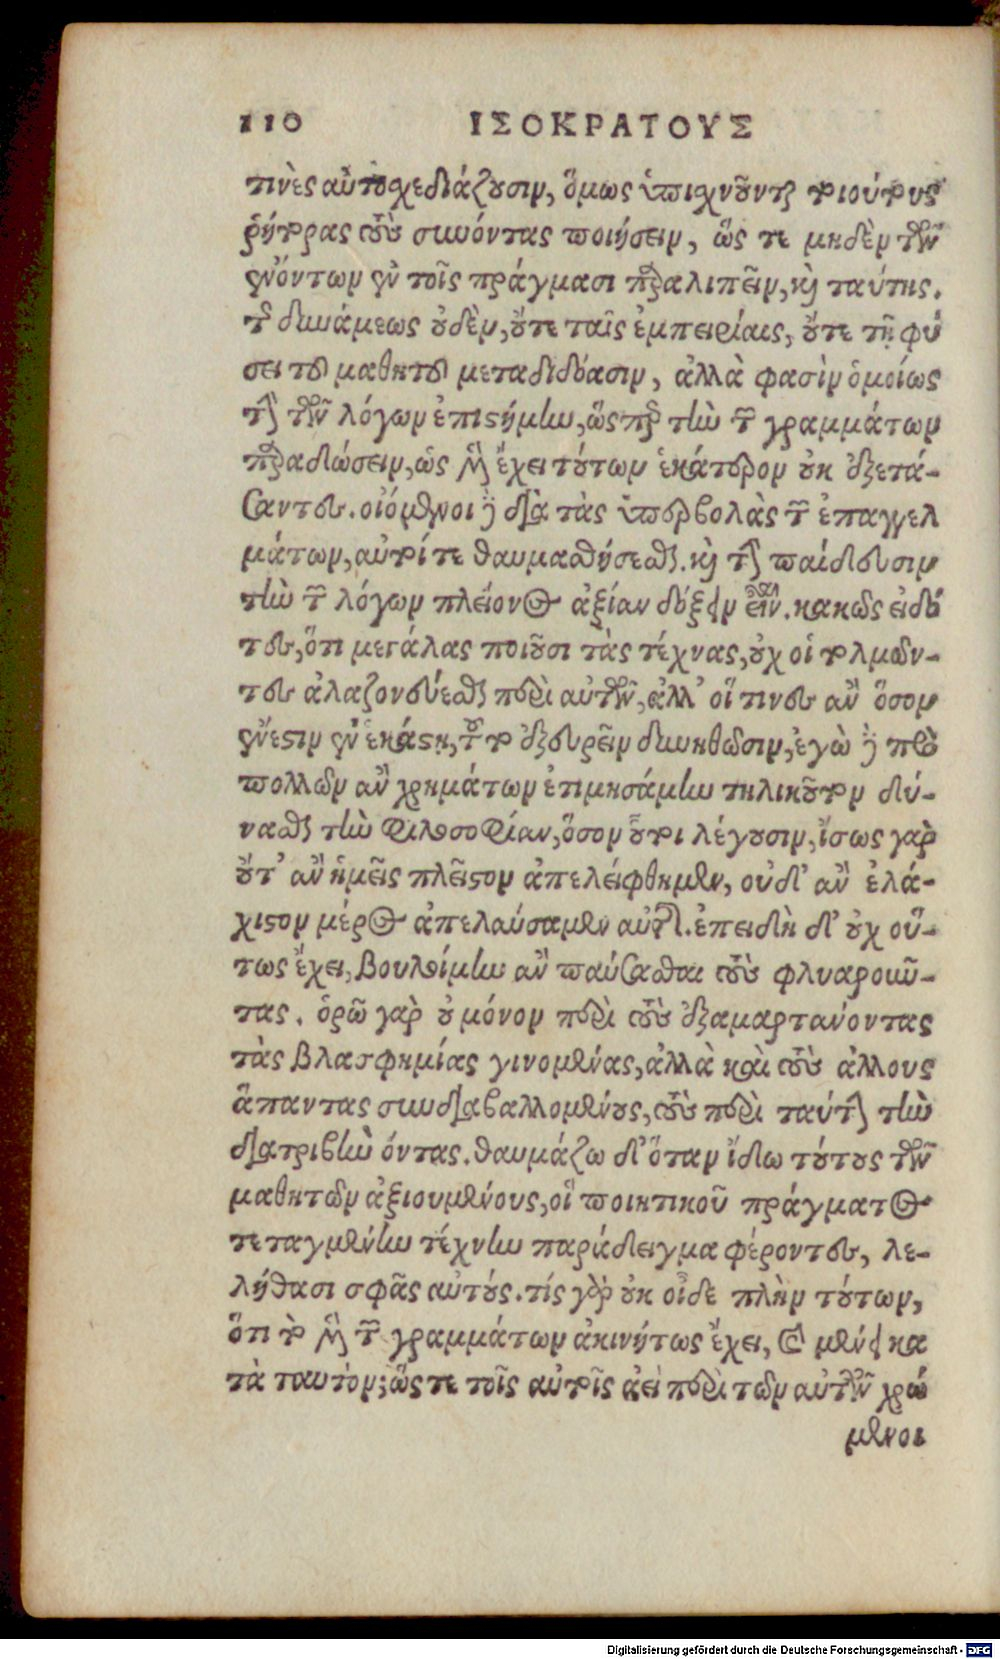 110 ΙΣΟΚΡΑΤΟΥΣ
τινὲς αὐτοχεδιάζουσιν, ὅμως ὑπιχνοῦνται τοιούτους
ῥήτορας τοὺς συνόντας ποιήσειν, ὥς τε μηδὲν τῶν
ἐνόντων ἐν τοῖς πράγμασι παραλιπεῖν, καὶ ταύτης.
τῆς δυνάμεως οὐδὲν, οὔτε ταῖς ἐμπειρίαις, οὔτε τῇ φύ
σει τοῦ μαθητοῦ μεταδιδόασιν, ἀλλὰ φασὶν ὁμοίως
τὴν τῶν λόγων ἐπιστήμην, ὥσπερ τὴν τῶν γραμμάτων
παραδώσειν, ὡς μὲν ἔχει τούτων ἑκάτερον οὐκ ἐξετά-
σαντες. οἰόμενοι δὲ διὰ τὰς ὑπερβολὰς τῶν ἐπαγγελ
μάτων, αὐτοί τε θαυμασθήσεσθαι. καὶ τὴν παίδευσιν
τὴν τῶν λόγων πλείονος ἀξίαν δόξειν εἶναι. κακῶς εἰδό
τες, ὅτι μεγάλας ποιοῦσι τὰς τέχνας, οὐχ οἱ τολμῶν-
τες ἀλαζονεύεσθαι περὶ αὐτῶν, ἀλλ’ οἵ τινες ἂν ὅσον
ἔνεστιν ἐν ἑκάστῃ, τοῦτο ἐξευρεῖν δυνηθῶσιν, ἐγὼ δὲ πρὸ
πολλῶν ἂν χρημάτων ἐτιμησάμην τηλικοῦτον δύ-
νασθαι τὴν φιλοσοφίαν, ὅσον οὗτοι λέγουσιν, ἴσως γὰρ
οὔτ’ ἂν ἡμεῖς πλεῖστον ἀπελείφθημεν, οὐδ’ ἂν ἐλά-
χιστον μέρος ἀπελαύσαμεν αὐτῆς. ἐπειδὴ δ’ οὐχ οὕ-
τως ἔχει, βουλοίμην ἂν παύσασθαι τοὺς φλυαροῦν-
τας. ὁρῶ γὰρ οὐ μόνον περὶ τοὺς ἐξαμαρτάνοντας
τὰς βλασφημίας γινομένας, ἀλλὰ καὶ τοὺς ἄλλους
ἅπαντας συνδιαβαλλομένους, τοὺς περὶ ταύτην τὴν
διατριβὴν όντας. θαυμάζω δ’ ὅταν ἴδω τούτους τῶν
μαθητῶν ἀξιουμένους, οἳ ποιητικοῦ πράγματος
τεταγμένην τέχνην παράδειγμα φέροντες, λε-
λήθασι σφᾶς αὐτούς. τίς γὰρ οὐκ οἶδε πλὴν τούτων,
ὅτι τὸ μὲν τῶν γραμμάτων ἀκινήτως ἔχει, καὶ μένει κα
τὰ ταυτόν; ὥς τε τοῖς αὐτοῖς ἀεὶ περὶ τῶν αὐτῶν χρώ
μενοι
Digitalisierung gefördert durch die Deutsche Forschungsgemeinschaft - DFG